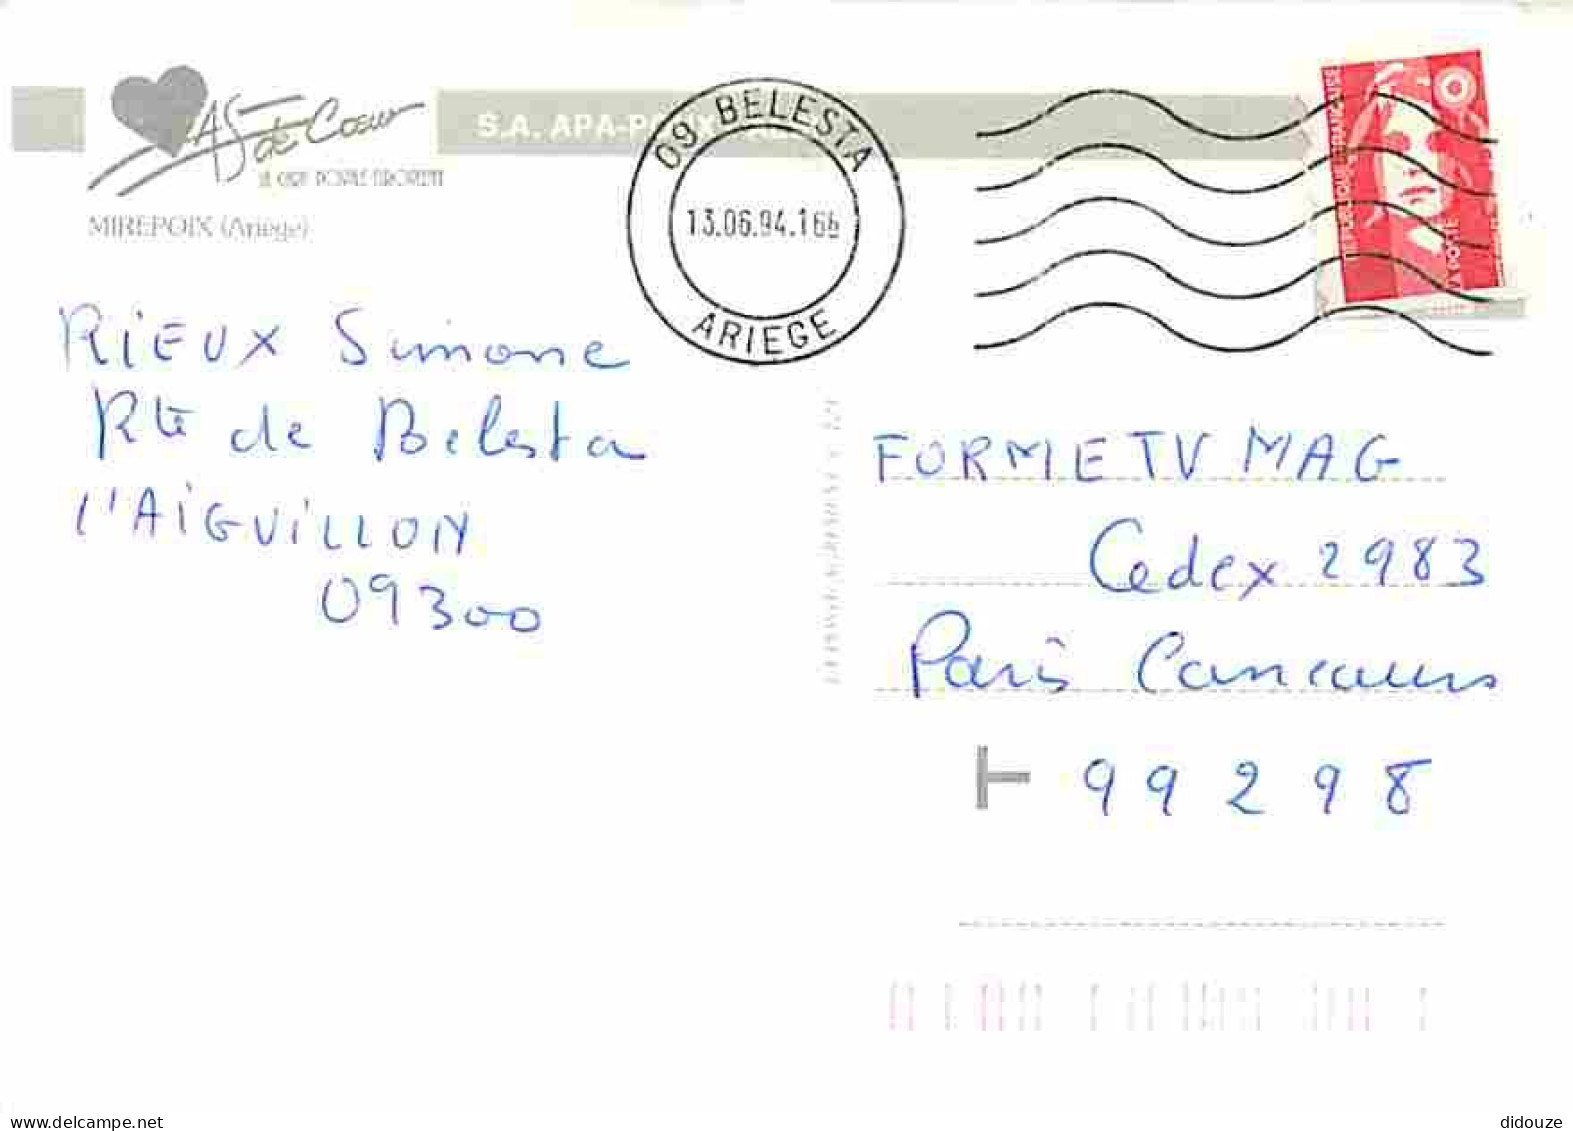 AS de Cœur
S.A. APA-POUX
MIREPOIX (Ariège)
09 BELESTA
13.06.94.16h
ARIEGE
REPUBLIQUE FRANÇAISE
LA POSTE
RIEUX Simone
Rte de Belesta
l'AIGUILLON
09300
FORME TV MAG
Cedex 2983
Paris Concours
99298
didouze